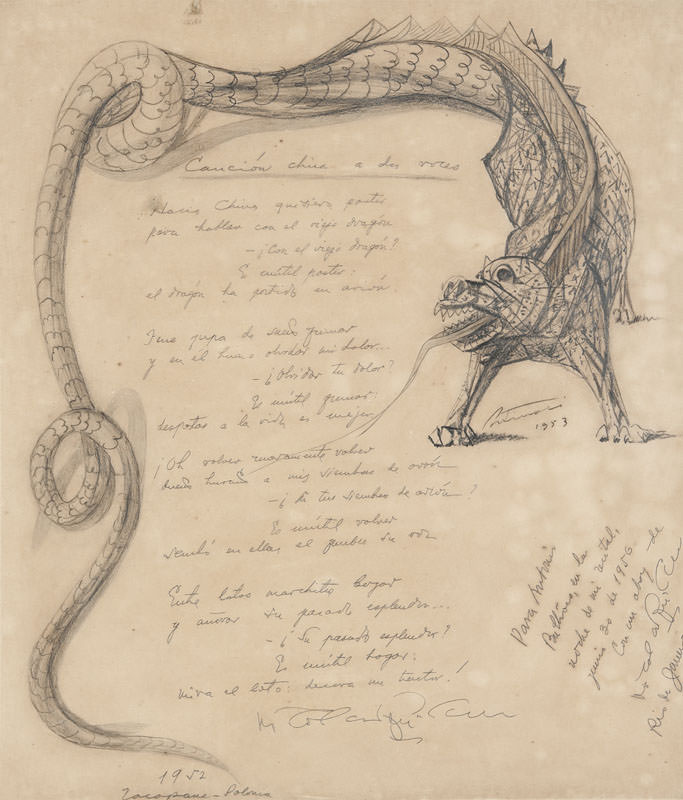 Canción china a dos voces
Hacia China quisiera partir
para hablar con el viejo dragón
- ¿Con el viejo dragón?
Es inútil partir:
el dragón ha partido en avión.
Una pipa de sueño fumar
y en el humo olvidar mi dolor...
- ¿Olvidar tu dolor?
Es inútil fumar:
despertar a la vida es mejor.
¡Oh volver nuevamente volver
dueño a mis siembras de arroz
- ¿A tus siembras de arroz?
Es inútil volver
sembró en ellas el pueblo su voz
Entre lotos marchitos bogar
y añorar su pasado esplendor...
- ¿Su pasado esplendor?
Es inútil bogar:
mira el loto: decora un tractor!
1952
Zacopane - Polonia
1953
Para Antonio
en la
noche de mi
junio 30 de 1956
Con un abrazo de
Rio de Janeiro